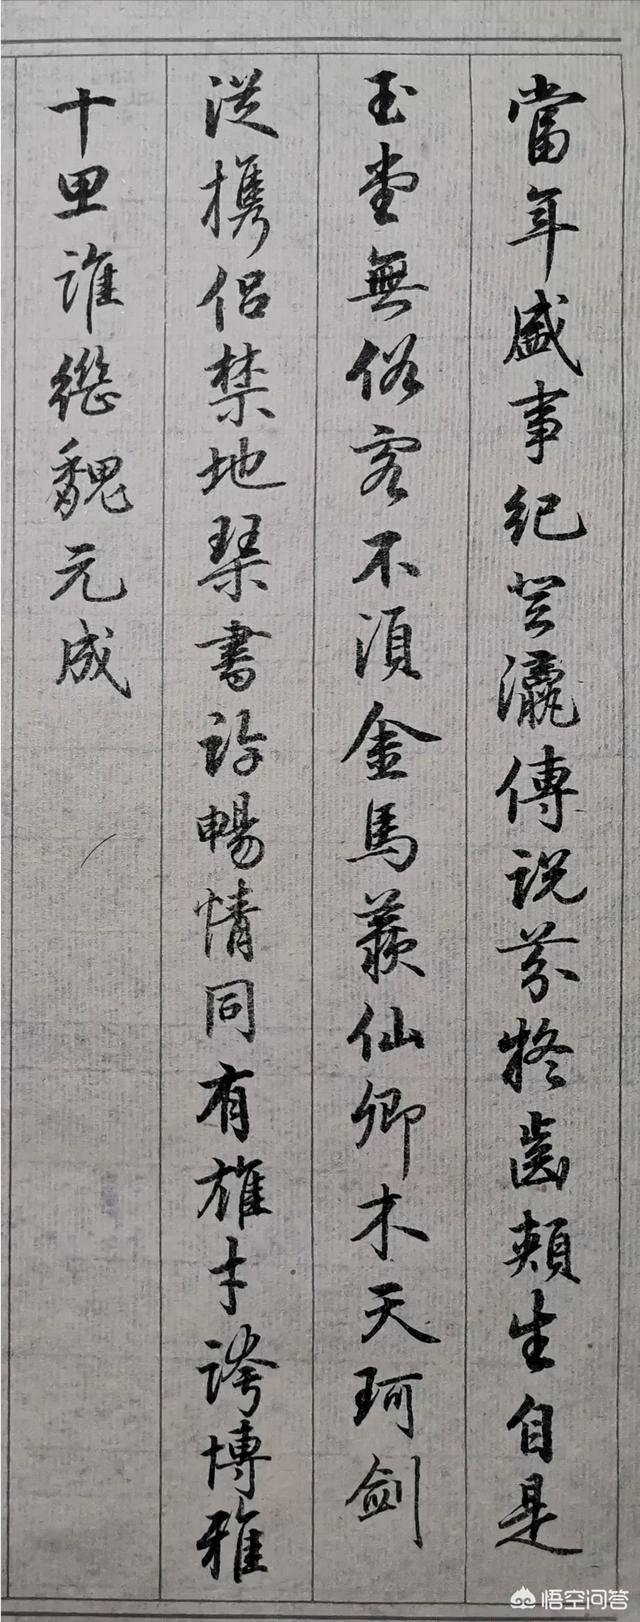 當年盛事紀登瀛傳說芬於齒頰生自是
玉堂無俗客不須金馬羨仙卿木天珂劍
從携侶禁地琴書許暢情同有雄才誇博雅
十思誰繼魏元成
悟空问答